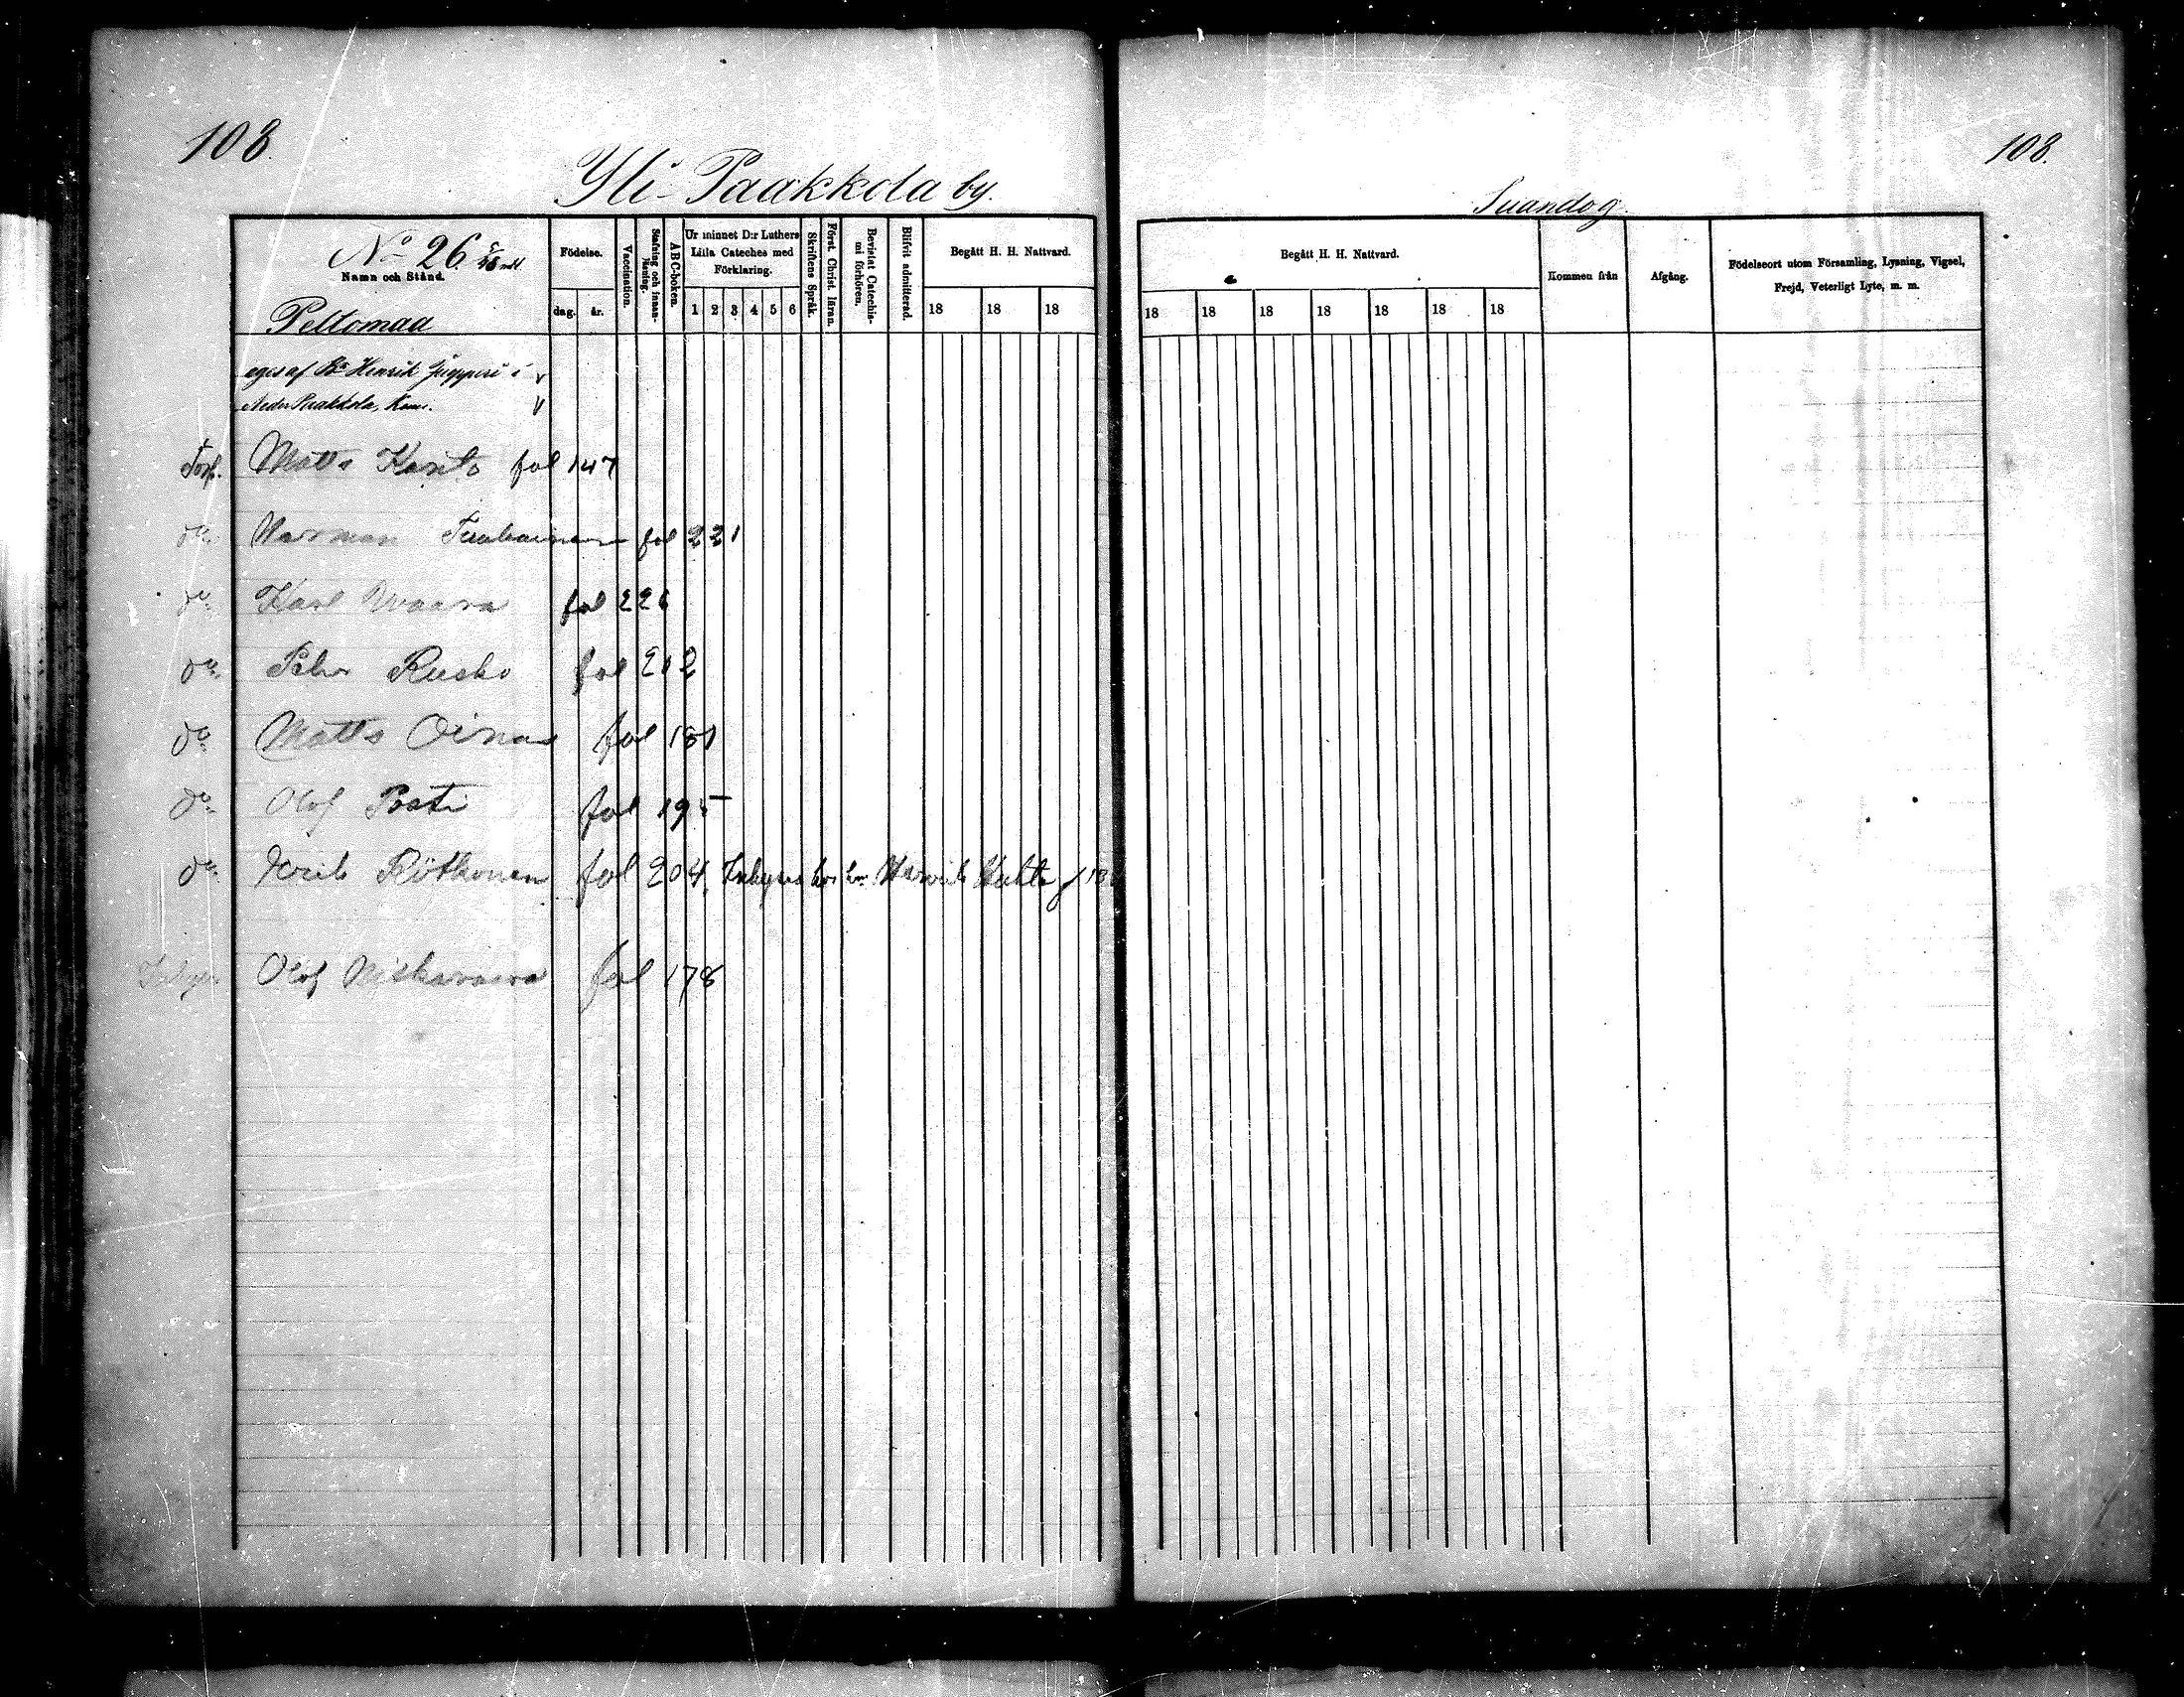 108.
Yli-Paakkola by.
No 26.
Namn och Stånd.
Peltomaa
Födelse.
dag. år.
Vaccination.
Stafning och innan-läsning.
ABC-boken.
Ur minnet D:r Luthers
Lilla Cateches med
Förklaring.
1 2 3 4 5 6
Skriftens Språk.
Först. Christ. läran.
Bevistat Catechis-
mi förhören.
Blifvit admitterad.
Begått H. H. Nattvard.
18 18 18
eges af Bn Henrik Juppuri i
Neder Paakkola, Kemi.
Torp. Matts Kanto fol 147
do Herman fol 221
do Karl Waara fol 226
do Petter Rusko fol 212
do Matts Oinas fol 181
do Olof Posti fol 195
do Henrik Röthonen fol 204. Inhyses hos Huhta
Olof Niskavaara fol 178
108.
Suandog.
Begått H. H. Nattvard.
18 18 18 18 18 18 18
Kommen från
Afgång.
Födelseort utom Församling, Lysning, Vigsel,
Frejd, Veterligt Lyte, m. m.